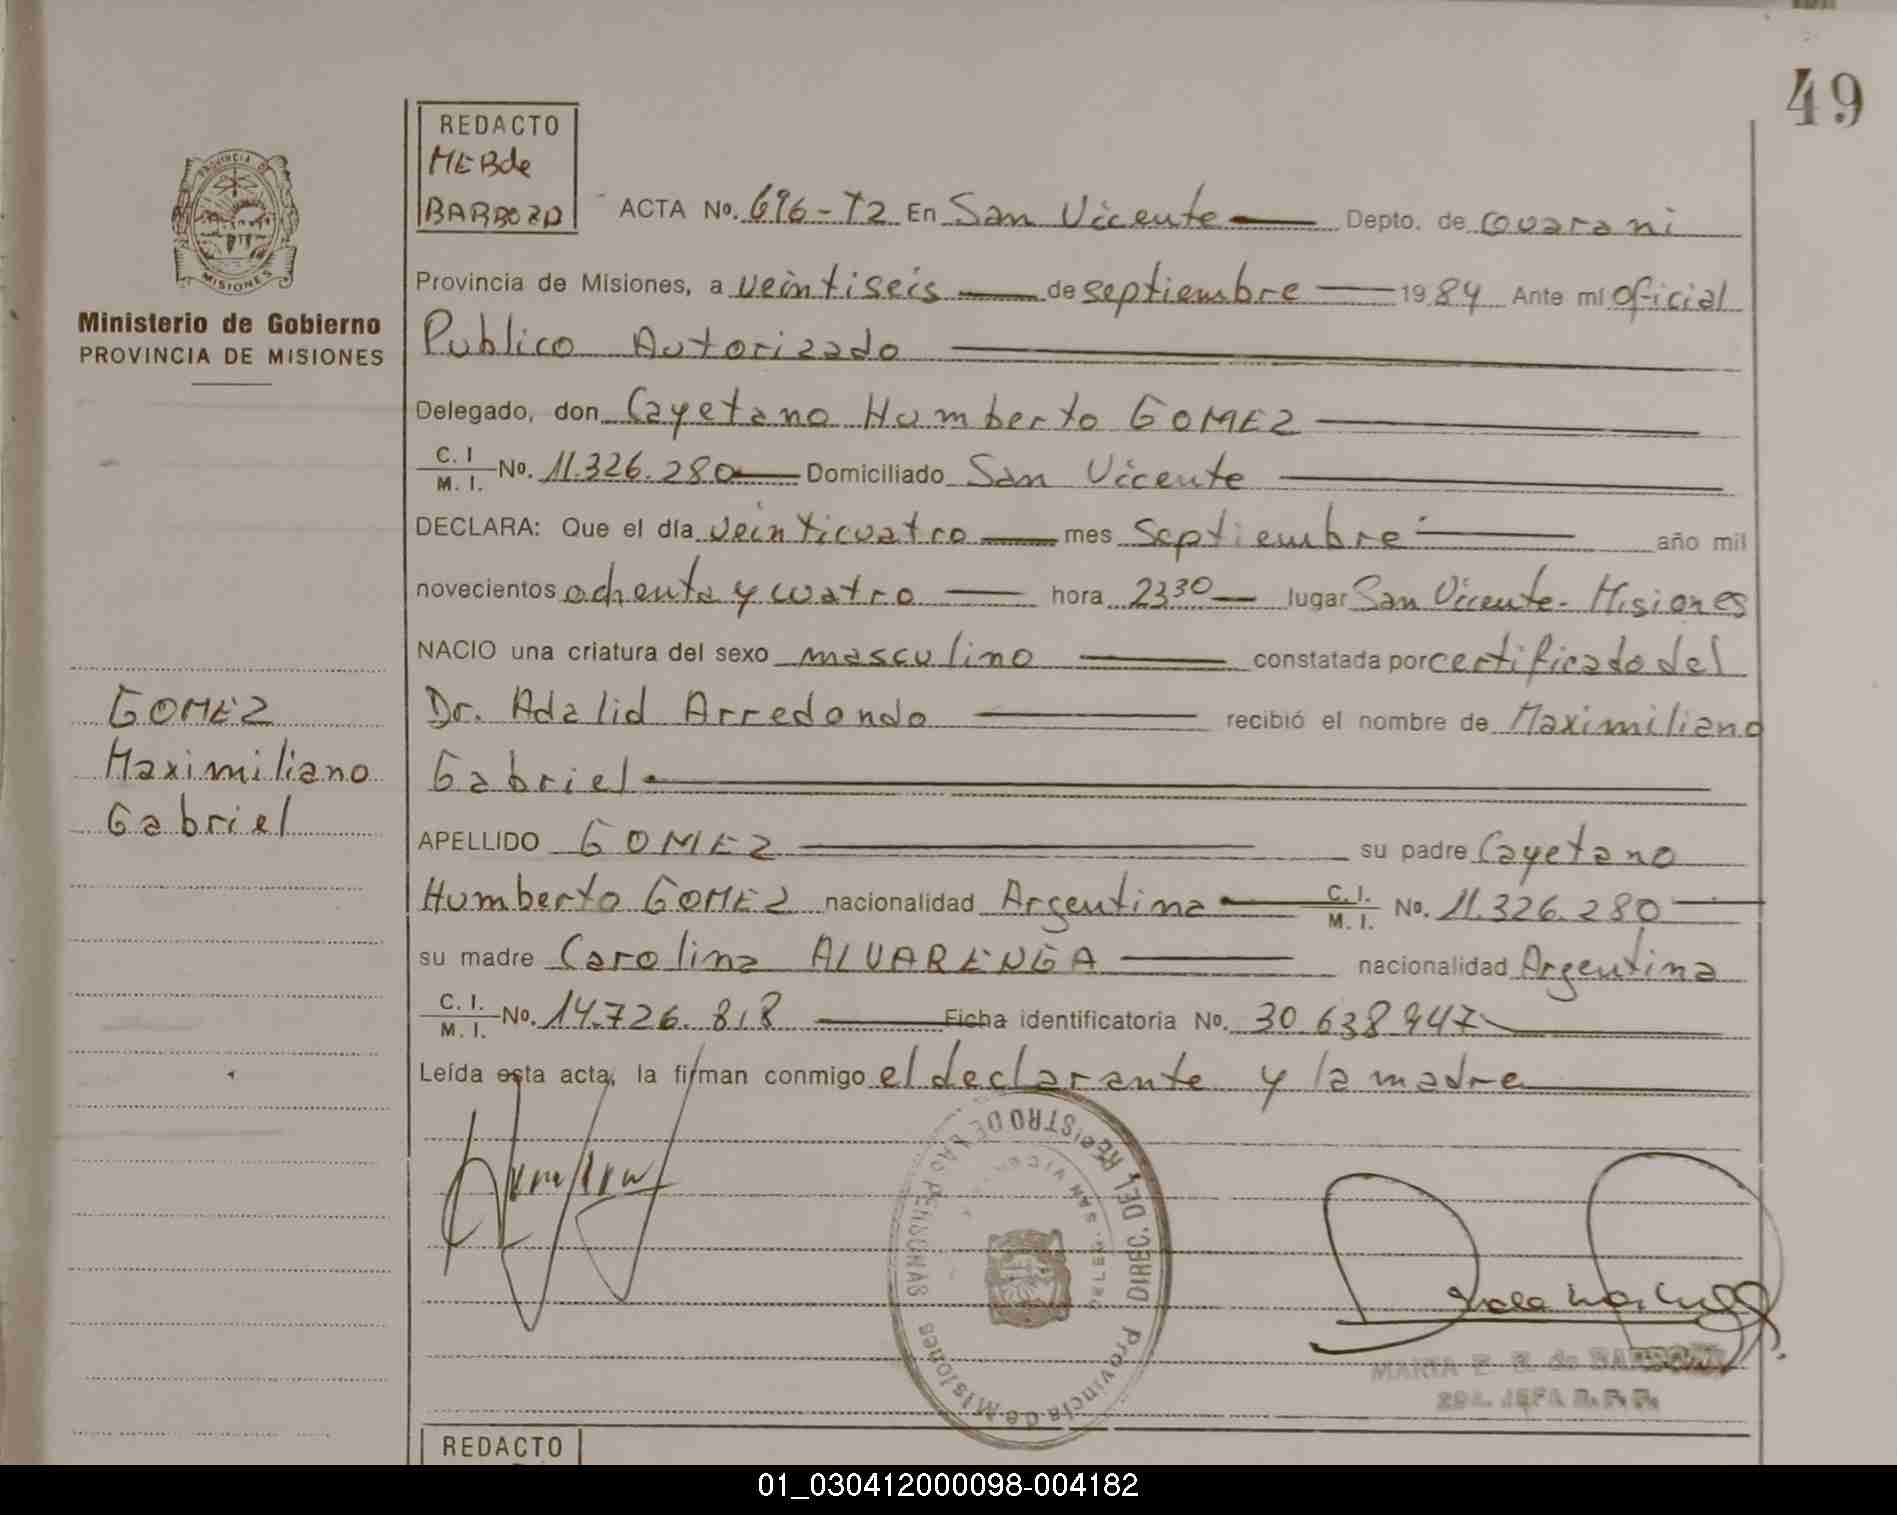 49
REDACTO
MEBde
BARBOZA
PROVINCIA DE
MISIONES
Ministerio de Gobierno
PROVINCIA DE MISIONES
ACTA No. 696-T2 En San Vicente Depto. de Guarani
Provincia de Misiones, a veintiseis de septiembre 1984 Ante mi oficial
Publico Autorizado
Delegado, don Cayetano Humberto GOMEZ
C. I M. I. No. 11.326.280 Domiciliado San Vicente
DECLARA: Que el día veinticuatro mes septiembre año mil
novecientos ochenta y cuatro hora 2330 lugar San Vicente - Misiones
NACIO una criatura del sexo masculino constatada por certificado del
Dr. Adalid Arredondo recibió el nombre de Maximiliano
Gabriel
GOMEZ
Maximiliano
Gabriel
APELLIDO GOMEZ su padre Cayetano
Humberto GOMEZ nacionalidad Argentina C. I. M. I. No. 11.326.280
su madre Carolina ALVARENGA nacionalidad Argentina
C. I. M. I. No. 14.726.818 Ficha identificatoria No. 30.638.947
Leída esta acta, la firman conmigo el declarante y la madre
DIREC. DEL REGISTRO DE LAS PERSONAS
Provincia de Misiones
DELEG. SAN VICENTE
MARIA E. B. de BARBOZA
REDACTO
01_030412000098-004182